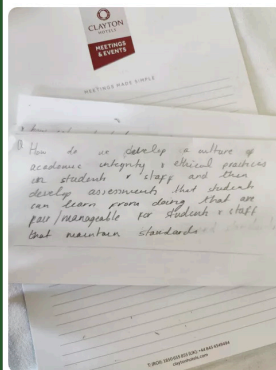 CLAYTON
HOTELS
MEETINGS
& EVENTS
MEETINGS MADE SIMPLE
How do we develop a culture of
academic integrity & ethical practices
in students & staff and then
develop assessments that students
can learn from doing that are
fair/manageable for students & staff
that maintain standards
claytonhotels.com